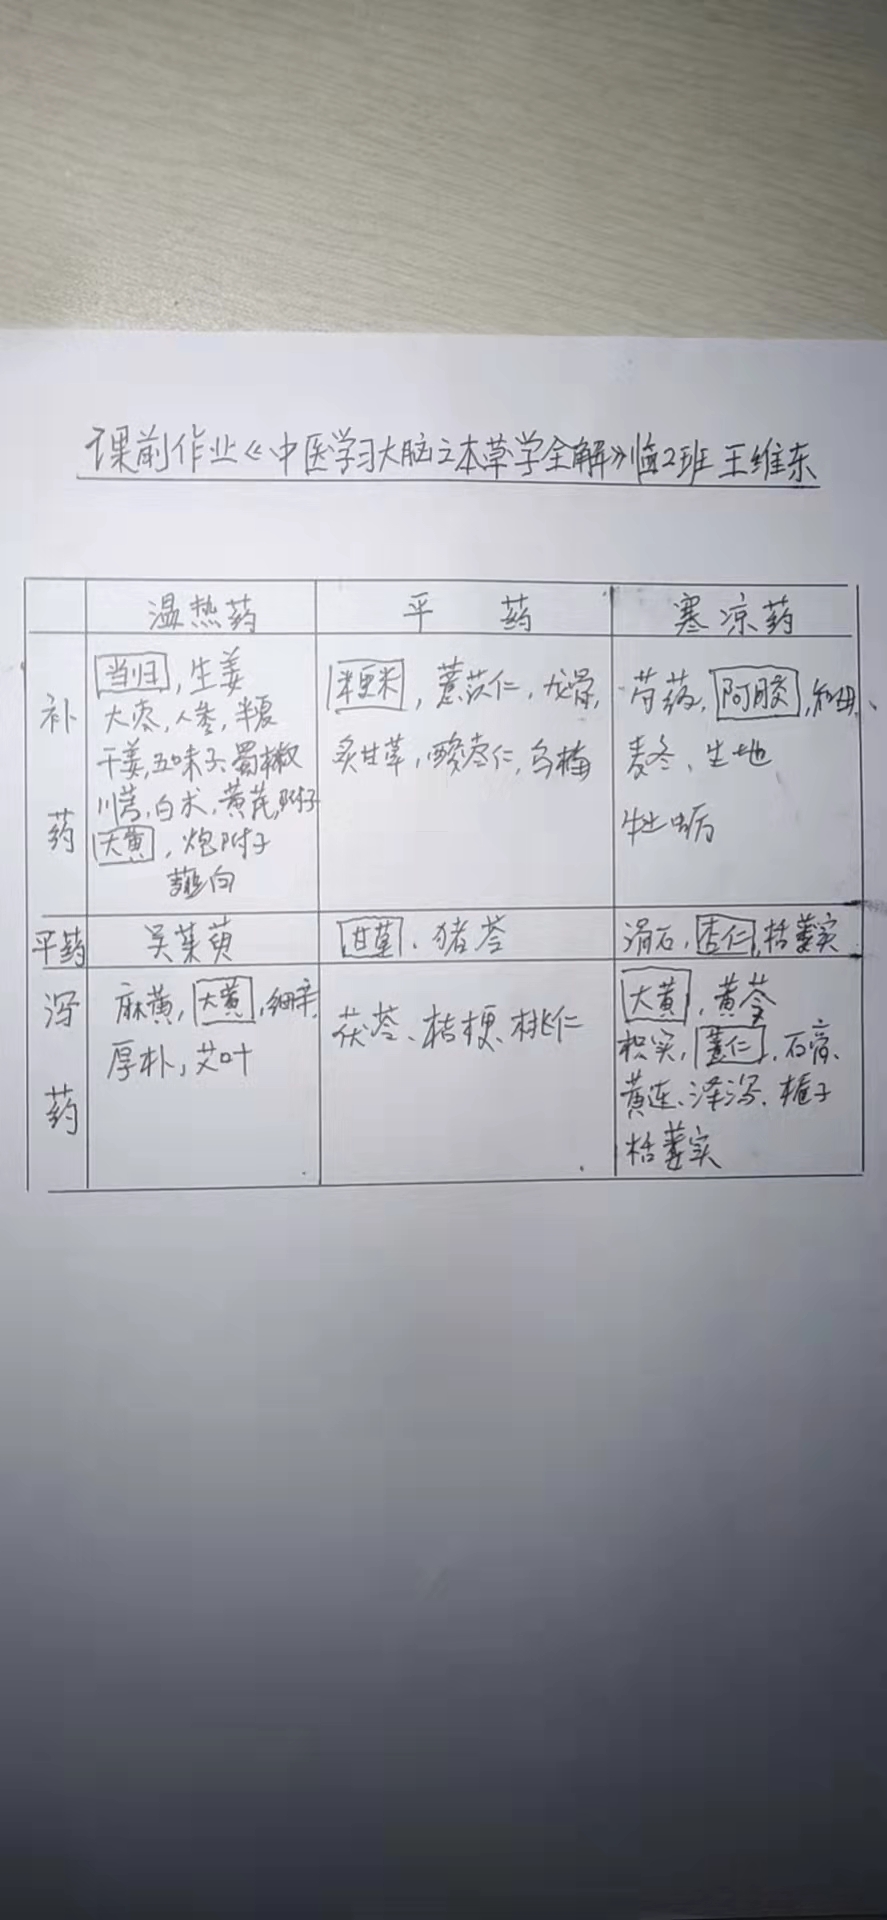 课前作业《中医学习大脑之本草学全解》临2班 王维东
温热药 平药 寒凉药
补药
当归，生姜
大枣，人参，半夏
干姜，五味子、蜀椒
川芎，白术，黄芪，附子
大黄，炮附子
薤白
粳米，薏苡仁，龙骨，
炙甘草，酸枣仁，乌梅
芍药，阿胶，知母、
麦冬、生地
牡蛎
平药
吴茱萸
甘草、猪苓
滑石，杏仁，栝蒌实
泻药
麻黄，大黄，细辛，
厚朴，艾叶
茯苓、桔梗、桃仁
大黄，黄芩
枳实，薏仁，石膏、
黄连、泽泻、栀子
栝蒌实